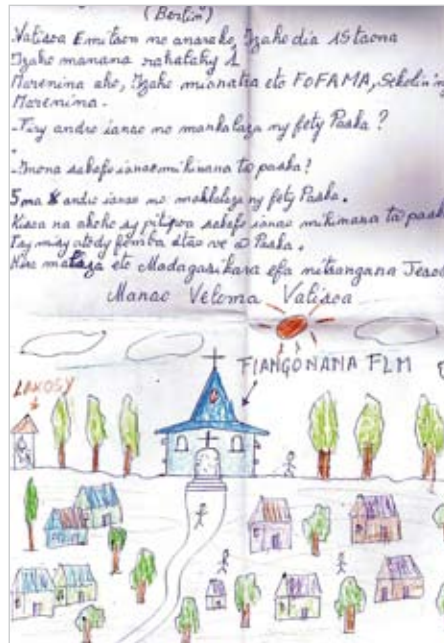 (Berlin)
Valisoa Emitson no anarako, Izaho dia 15 taona
Izaho manana rahalahy 1
Marenina aho, Izaho mianatra eto FOFAMA, Sekolin'ny
Marenina.
-Firy andro ianao no mankalaza ny fety Paska ?
-Inona sakafo ianao mihinana ta paska?
5 ma 8 andro ianao no maklalaza ny fety Paska.
Kisoa na akoho sy pitipoa sakafo ianao mihinana ta paska
Tsy misy atody fomba atao ve a Paska.
Hira malaza eto Madagasikara efa nitsangana Jesoa
Manao Veloma Valisoa
FIANGONANA FLM
LAKOSY